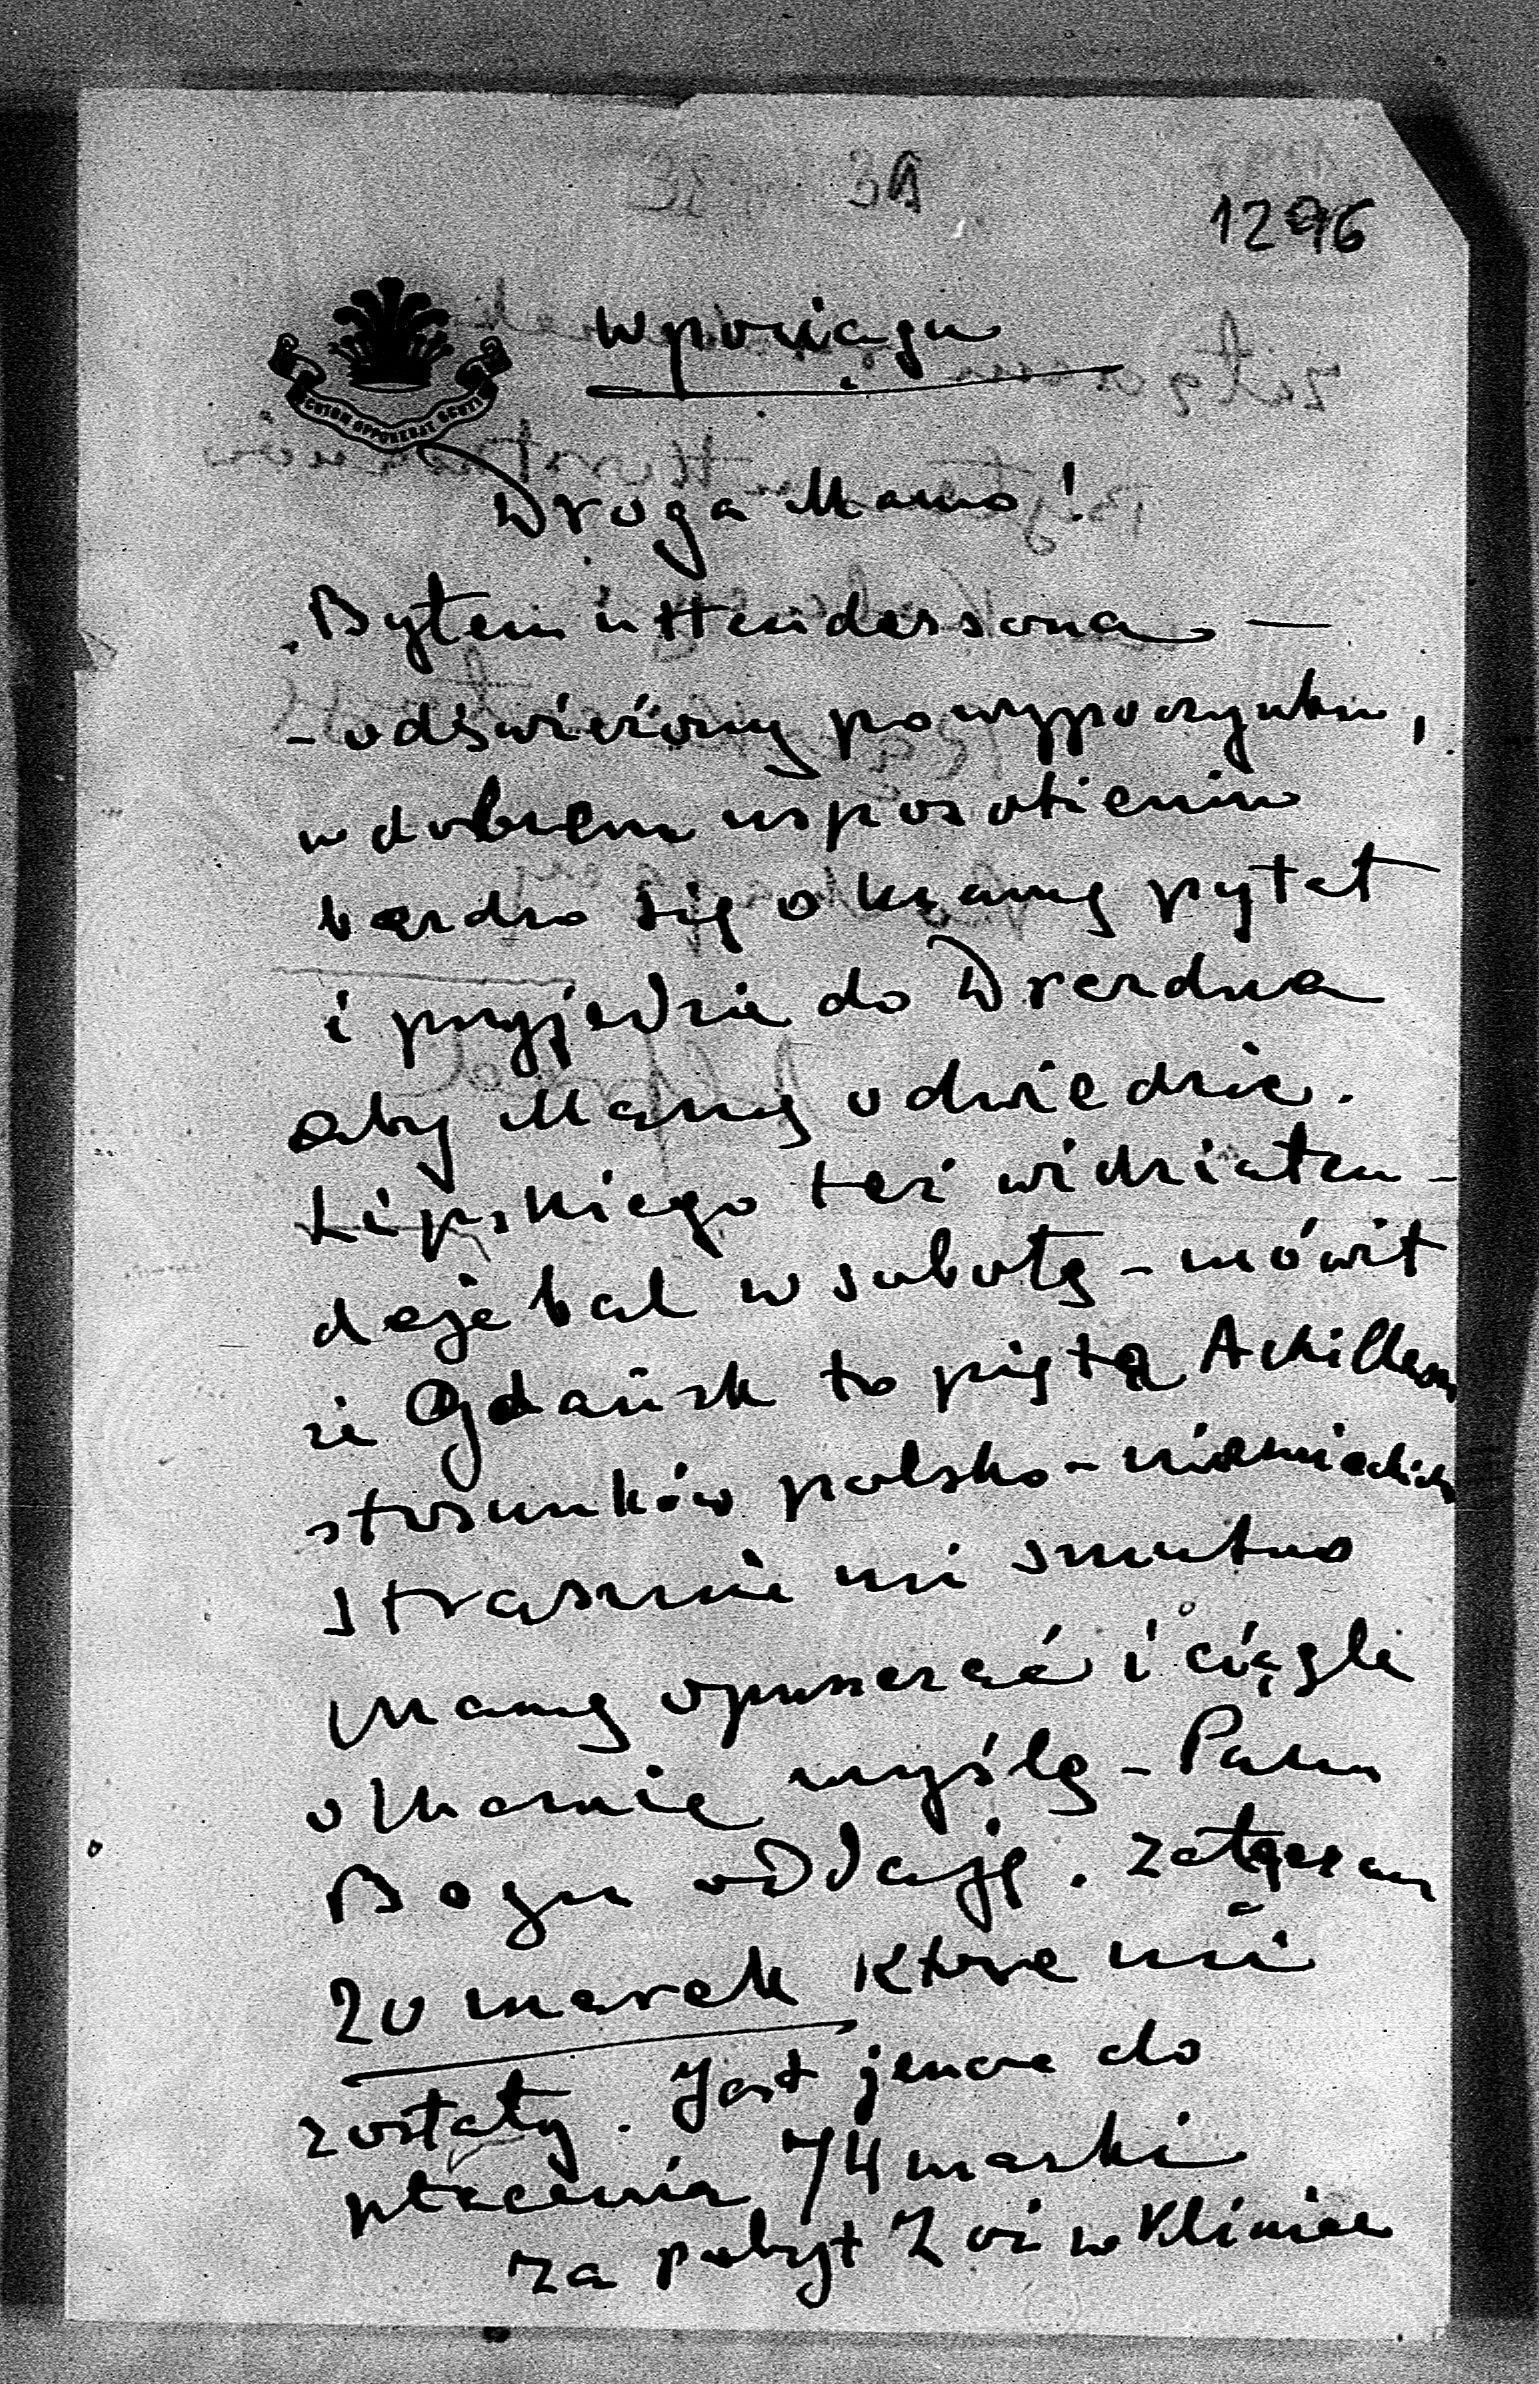 1296
SCUTUM OPPONEBAT SCUTIS
w pociągu
Droga Mamo!
Byłem u Hendersona —
- odświeżony po wypoczynku,
w dobrem usposobieniu
bardzo się o Mamę pytał
i przyjedzie do Drezdna
aby Mamę odwiedzić.
Lipskiego też widziałem -
daje bal w sobotę - mówił
że Gdańsk to piętą Achillesa
stosunków polsko-niemieckich
strasznie mi smutno
Mamę opuszczać i ciągle
o Mamie myślę - Panu
Bogu oddaję. załączam
20 marek które mi
zostały. Jest jeszcze do
płacenia 74 marki
za pobyt Zosi w Klinice